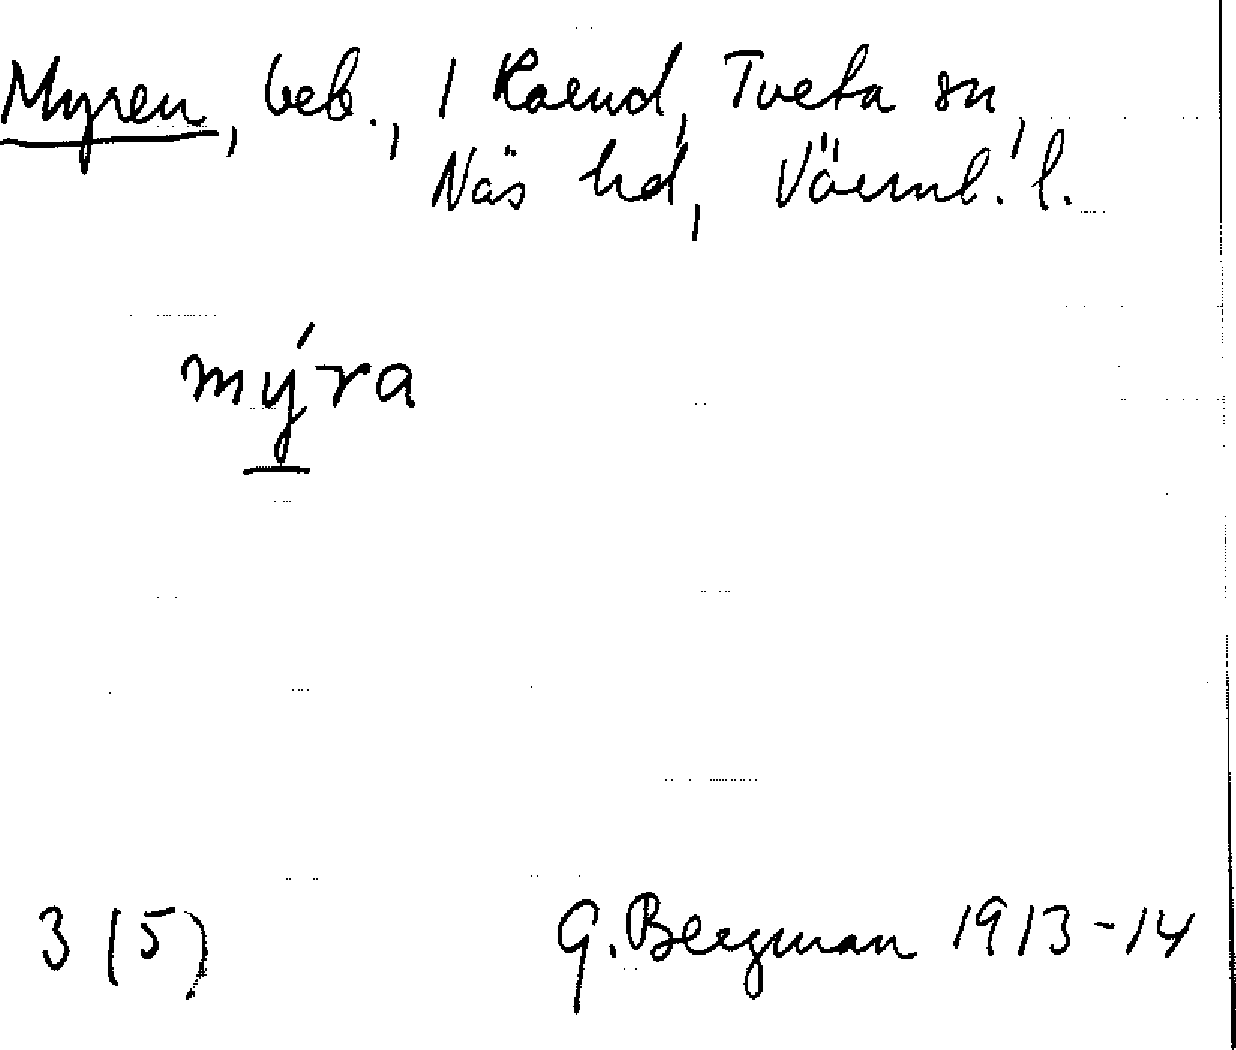 Myren, beb., 1 Raend, Tveta sn,
Näs hd, Värml. l.
mýra
3 (5) G. Bergman 1913-14